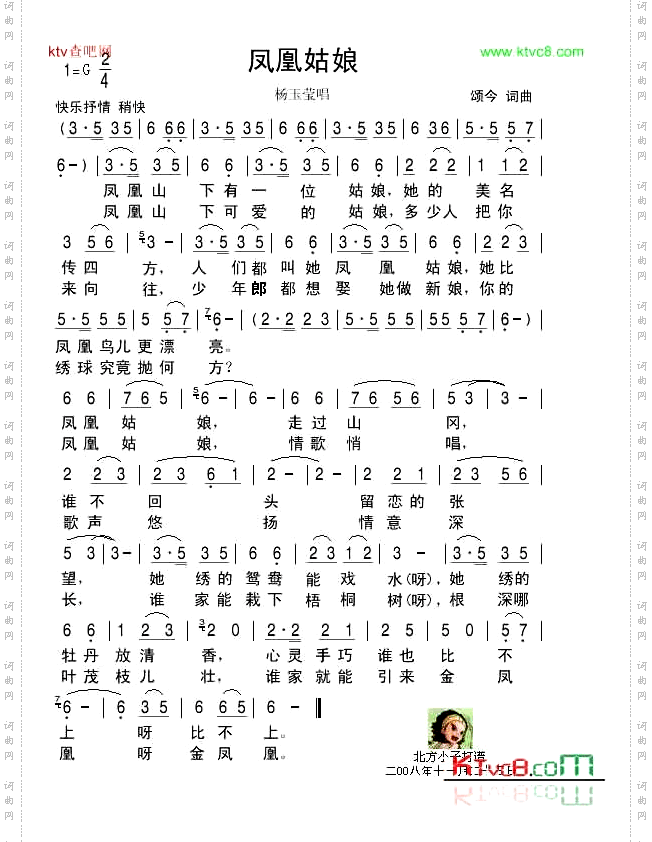 ktv查吧网
凤凰姑娘
www.ktvc8.com
1=G 2/4
杨玉莹唱
颂今 词曲
快乐抒情 稍快
(3·5 35 | 6 66 | 3·5 35 | 6 6 | 3·5 35 | 6 36 | 5·5 57 |
6-) | 3·5 35 | 6 6 | 3·5 35 | 6 6 | 2 22 | 1 12 |
凤凰山 下有一 位 姑娘,她的 美名
凤凰山 下可爱 的 姑娘,多少人 把你
3 56 | 53- | 3·5 35 | 6 6 | 35 35 | 6 6 | 223 |
传四 方, 人 们都叫她 凤 凰 姑娘,她比
来向 往, 少 年郎都想娶 她做 新娘,你的
5·5 55 | 5 57 | 76- | (2·2 23 | 5·5 55 | 55 57 | 6-) |
凤凰鸟儿更漂 亮。
绣球究竟抛何 方?
6 6 | 765 | 56- | 6- | 6 6 | 76 56 | 53 | 3- |
凤凰 姑 娘, 走过山 冈,
凤凰 姑 娘, 情歌悄 唱,
2 23 | 23 61 | 2- | 2- | 2 2 | 221 | 23 56 |
谁不 回 头 留恋的张
歌声 悠 扬 情意 深
53 | 3- | 3·5 35 | 6 6 | 23 12 | 3 3 | 3·5 35 |
望, 她 绣的鸳鸯 能 戏 水(呀),她 绣的
长, 谁 家能栽下 梧 桐 树(呀),根 深哪
6 6 | 1 23 | 320 | 2·2 23 | 55 | 2 0 | 57 |
牡丹 放清 香, 心灵手巧 谁也 比 不
叶茂 枝儿 壮, 谁家就能 引来 金 凤
76- | 6 35 | 6- | 6- ‖
上 呀 比不 上。
凰 呀 金凤 凰。
北方小子打谱
ktvc8.com
词曲网